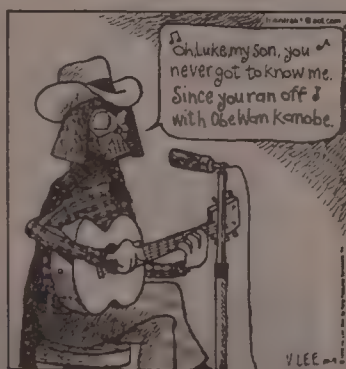 Oh Luke my son, you
never got to know me.
Since you ran off
with Obe Wan Kanobe.
V LEE